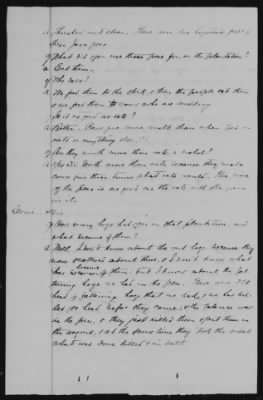 a Threshed and clean. There were two
these peas peas
q What did you use these peas for, on the plantation?
a Eat them.
q Who did?
a We fed them to the stock, & then the people eat them
& we fed them to cows who are milking
q Is it as good as oats?
a Better. Cows give more milk than when fed on
oats or anything else.
q Are they worth more than oats, a bushel?
a Yes sir. Worth more than oats, because they make
cows give three times what oats would. Then one
of the peas is as good as the oats with the
in it.
q How many hogs had you on that plantation, and
what became of them?
a Well, I don't know about the out hogs because they
were scattered about there, & I don't know what
became of them; but I know about the fat
tening hogs we had in the pen. There was
head of fattening hogs that we had, & we had kil
led head before they came, & the balance was
in the pen, & they just killed them & put them in
the wagons, & at the same time they took the meat
what was done killed & in salt